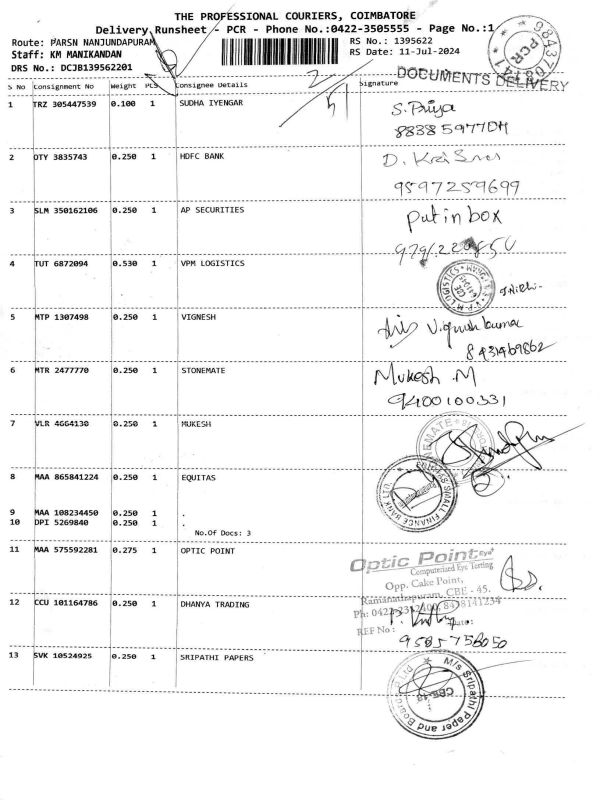 THE PROFESSIONAL COURIERS, COIMBATORE
Delivery Runsheet - PCR - Phone No.:0422-3505555 - Page No.:1
Route: PARSN NANJUNDAPURAM
RS No.: 1395622
Staff: KM MANIKANDAN
RS Date: 11-Jul-2024
DRS No.: DCJB139562201
DOCUMENTS DELIVERY
PCR
S No Consignment No Weight PCS Consignee Details Signature
1 TRZ 305447539 0.100 1 SUDHA IYENGAR
S. Priya
2 OTY 3835743 0.250 1 HDFC BANK
9597259699
3 SLM 350162106 0.250 1 AP SECURITIES
Put in box
4 TUT 6872094 0.530 1 VPM LOGISTICS
5 MTP 1307498 0.250 1 VIGNESH
Vignesh kumar
6 MTR 2477770 0.250 1 STONEMATE
Mukesh .M
9400100331
7 VLR 4664130 0.250 1 MUKESH
8 MAA 865841224 0.250 1 EQUITAS
SMALL FINANCE BANK LTD.
9 MAA 108234450 0.250 1 .
10 DPI 5269840 0.250 1 .
No.Of Docs: 3
11 MAA 575592281 0.275 1 OPTIC POINT
Optic Point Eye+
Computerized Eye Testing
Opp. Cake Point,
Ramanathapuram, CBE - 45.
REF No :
Date:
12 CCU 101164786 0.250 1 DHANYA TRADING
13 SVK 10524925 0.250 1 SRIPATHI PAPERS
M/s Sripathi Paper and Board